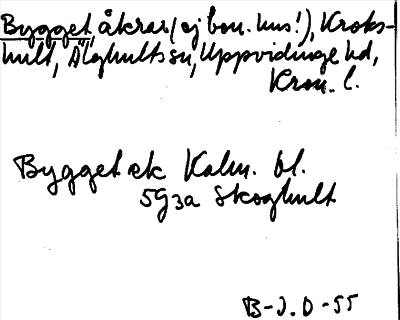 Bygget, åkrar (ej bon. hus!), Kroks-
hult, Älghults sn, Uppvidinge hd,
Kron. l.
Bygget ek Kalm. bl.
5G3a Skoghult
B-J.D-55